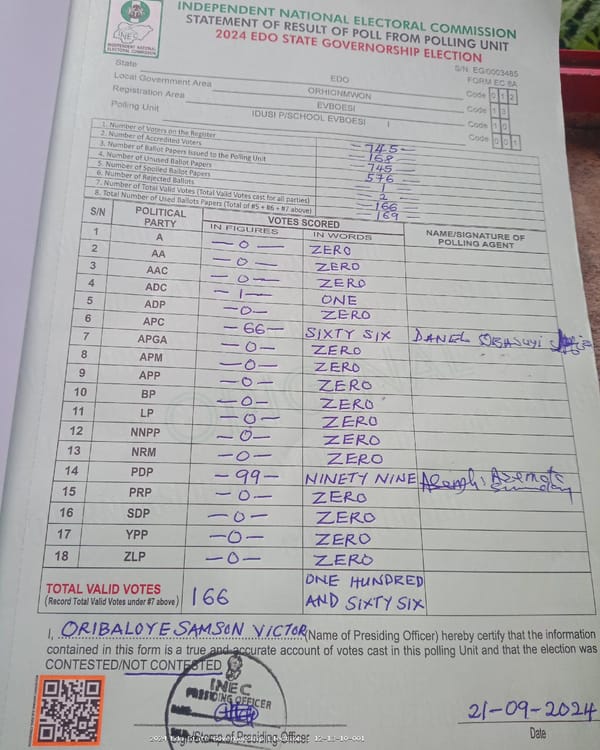 INDEPENDENT NATIONAL ELECTORAL COMMISSION
STATEMENT OF RESULT OF POLL FROM POLLING UNIT
2024 EDO STATE GOVERNORSHIP ELECTION
INEC
INDEPENDENT NATIONAL
ELECTORAL COMMISSION
S/N: EG0003485
FORM EC 8A
State EDO Code 0 1 2
Local Government Area ORHIONMWON Code 1 3
Registration Area EVBOESI Code 1 0
Polling Unit IDUSI P/SCHOOL EVBOESI I Code 0 0 1
1. Number of Voters on the Register 745
2. Number of Accredited Voters 168
3. Number of Ballot Papers Issued to the Polling Unit 745
4. Number of Unused Ballot Papers 576
5. Number of Spoiled Ballot Papers 1
6. Number of Rejected Ballots 2
7. Number of Total Valid Votes (Total Valid Votes cast for all parties) 166
8. Total Number of Used Ballots Papers (Total of #5 + #6 + #7 above) 169
S/N POLITICAL PARTY VOTES SCORED NAME/SIGNATURE OF POLLING AGENT
IN FIGURES IN WORDS
1 A -0- ZERO
2 AA -0- ZERO
3 AAC -0- ZERO
4 ADC -1- ONE
5 ADP -0- ZERO
6 APC -66- SIXTY SIX DANIEL
7 APGA -0- ZERO
8 APM -0- ZERO
9 APP -0- ZERO
10 BP -0- ZERO
11 LP -0- ZERO
12 NNPP -0- ZERO
13 NRM -0- ZERO
14 PDP -99- NINETY NINE Asemota Sunday
15 PRP -0- ZERO
16 SDP -0- ZERO
17 YPP -0- ZERO
18 ZLP -0- ZERO
TOTAL VALID VOTES 166 ONE HUNDRED
(Record Total Valid Votes under #7 above) AND SIXTY SIX
I, ORIBALOYE SAMSON VICTOR (Name of Presiding Officer) hereby certify that the information
contained in this form is a true and accurate account of votes cast in this polling Unit and that the election was
CONTESTED/NOT CONTESTED
INEC
PRESIDING OFFICER
21-09-2024
Sign/Stamp of Presiding Officer
Date